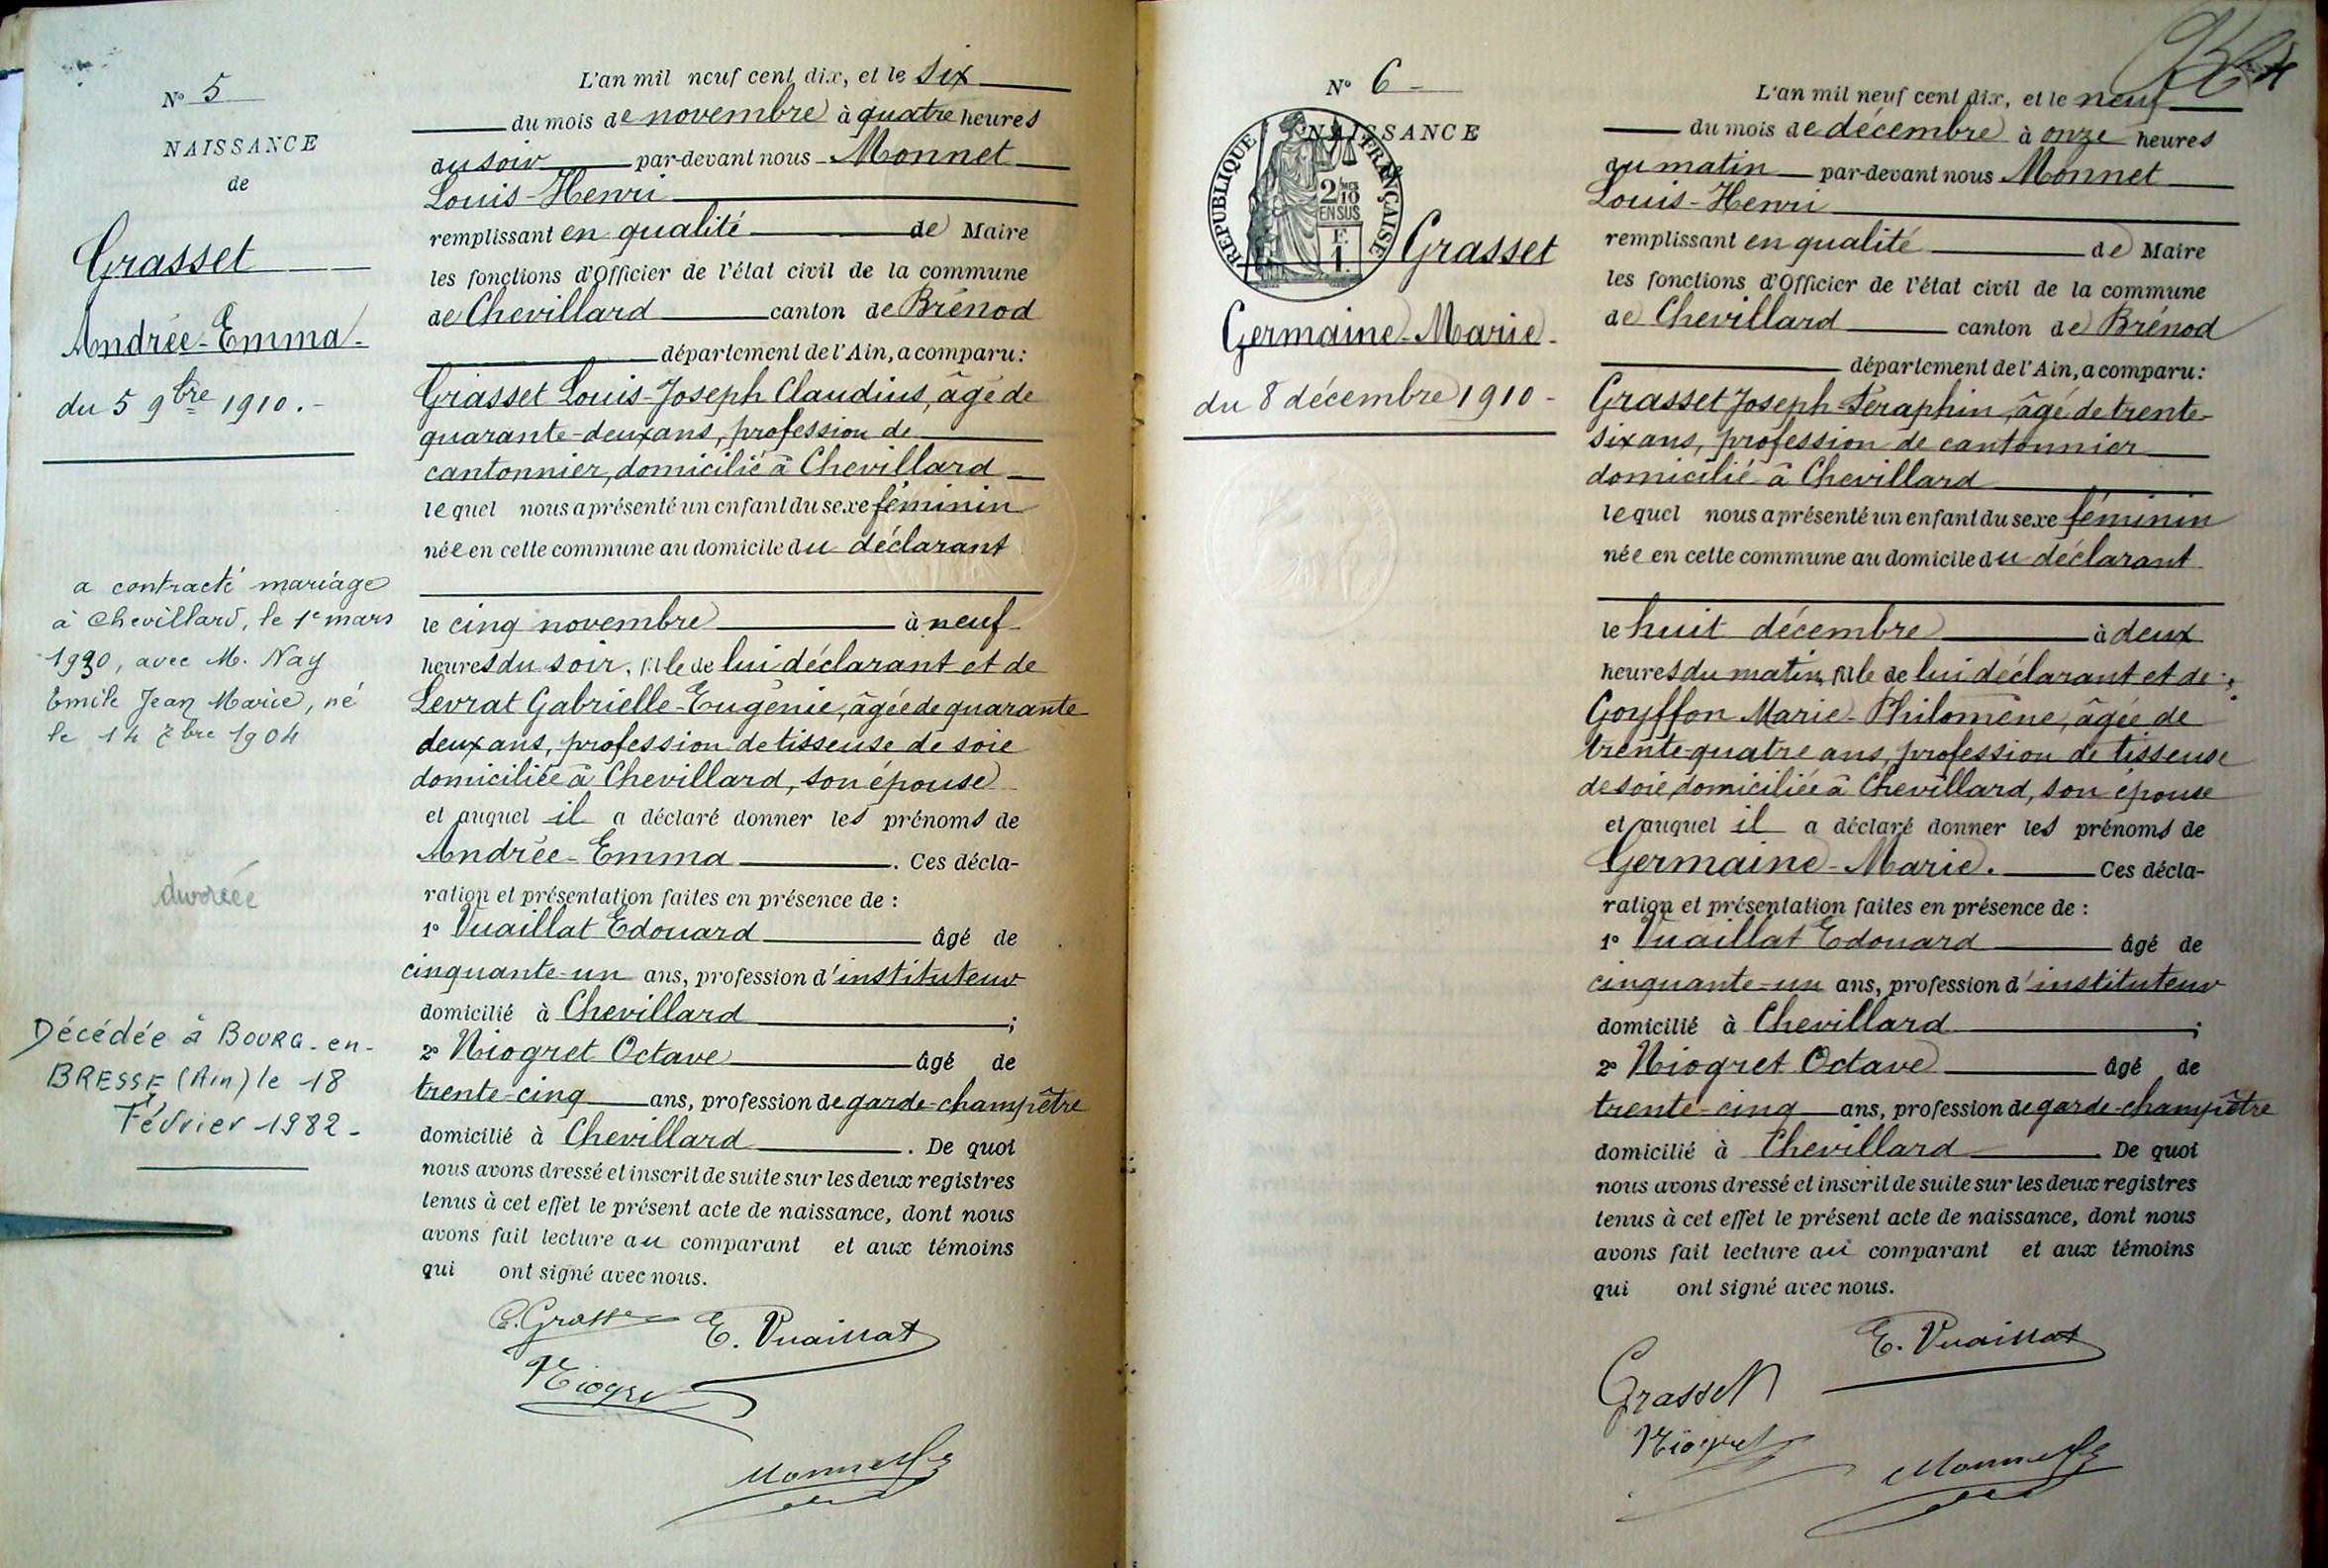 N° 5
NAISSANCE
de
Grasset
Andrée-Emma
du 5 9bre 1910.-
a contracté mariage
à Chevillard, le 1e mars
1930, avec M. Nay
Emile Jean Marie, né
le 14 7bre 1904
divorcée
Décédée à BOURG-en-
BRESSE (Ain) le 18
Février 1982-
L'an mil neuf cent dix, et le six
du mois de novembre à quatre heures
au soir par-devant nous Monnet
Louis-Henri
remplissant en qualité de Maire
les fonctions d'Officier de l'état civil de la commune
de Chevillard canton de Brénod
département de l'Ain, a comparu:
Grasset Louis-Joseph Claudius, âgé de
quarante-deux ans, profession de
cantonnier, domicilié à Chevillard
lequel nous a présenté un enfant du sexe féminin
née en cette commune au domicile du déclarant
le cinq novembre à neuf
heures du soir, fille de lui déclarant et de
Levrat Gabrielle-Eugénie, âgée de quarante
deux ans, profession de tisseuse de soie
domiciliée à Chevillard, son épouse
et auquel il a déclaré donner les prénoms de
Andrée-Emma. Ces décla-
ration et présentation faites en présence de :
1° Vuaillat Edouard âgé de
cinquante-un ans, profession d'instituteur
domicilié à Chevillard ;
2° Niogret Octave âgé de
trente-cinq ans, profession de garde-champêtre
domicilié à Chevillard. De quoi
nous avons dressé et inscrit de suite sur les deux registres
tenus à cet effet le présent acte de naissance, dont nous
avons fait lecture au comparant et aux témoins
qui ont signé avec nous.
E. Vuaillat
Monnet
N° 6
NAISSANCE
RÉPUBLIQUE FRANÇAISE
2/10
EN SUS
Grasset
Germaine-Marie-
du 8 décembre 1910-
L'an mil neuf cent dix, et le neuf
du mois de décembre à onze heures
au matin par-devant nous Monnet
Louis-Henri
remplissant en qualité de Maire
les fonctions d'Officier de l'état civil de la commune
de Chevillard canton de Brénod
département de l'Ain, a comparu:
Grasset Joseph-Séraphin, âgé de trente-
six ans, profession de cantonnier
domicilié à Chevillard
lequel nous a présenté un enfant du sexe féminin
née en cette commune au domicile du déclarant
le huit décembre à deux
heures du matin, fille de lui déclarant et de
Goyffon Marie-Philomène, âgée de
trente-quatre ans, profession de tisseuse
de soie, domiciliée à Chevillard, son épouse
et auquel il a déclaré donner les prénoms de
Germaine-Marie. Ces décla-
ration et présentation faites en présence de :
1° Vuaillat Edouard âgé de
cinquante-un ans, profession d'instituteur
domicilié à Chevillard ;
2° Niogret Octave âgé de
trente-cinq ans, profession de garde-champêtre
domicilié à Chevillard. De quoi
nous avons dressé et inscrit de suite sur les deux registres
tenus à cet effet le présent acte de naissance, dont nous
avons fait lecture au comparant et aux témoins
qui ont signé avec nous.
E. Vuaillat
Grasset
Niogret
Monnet